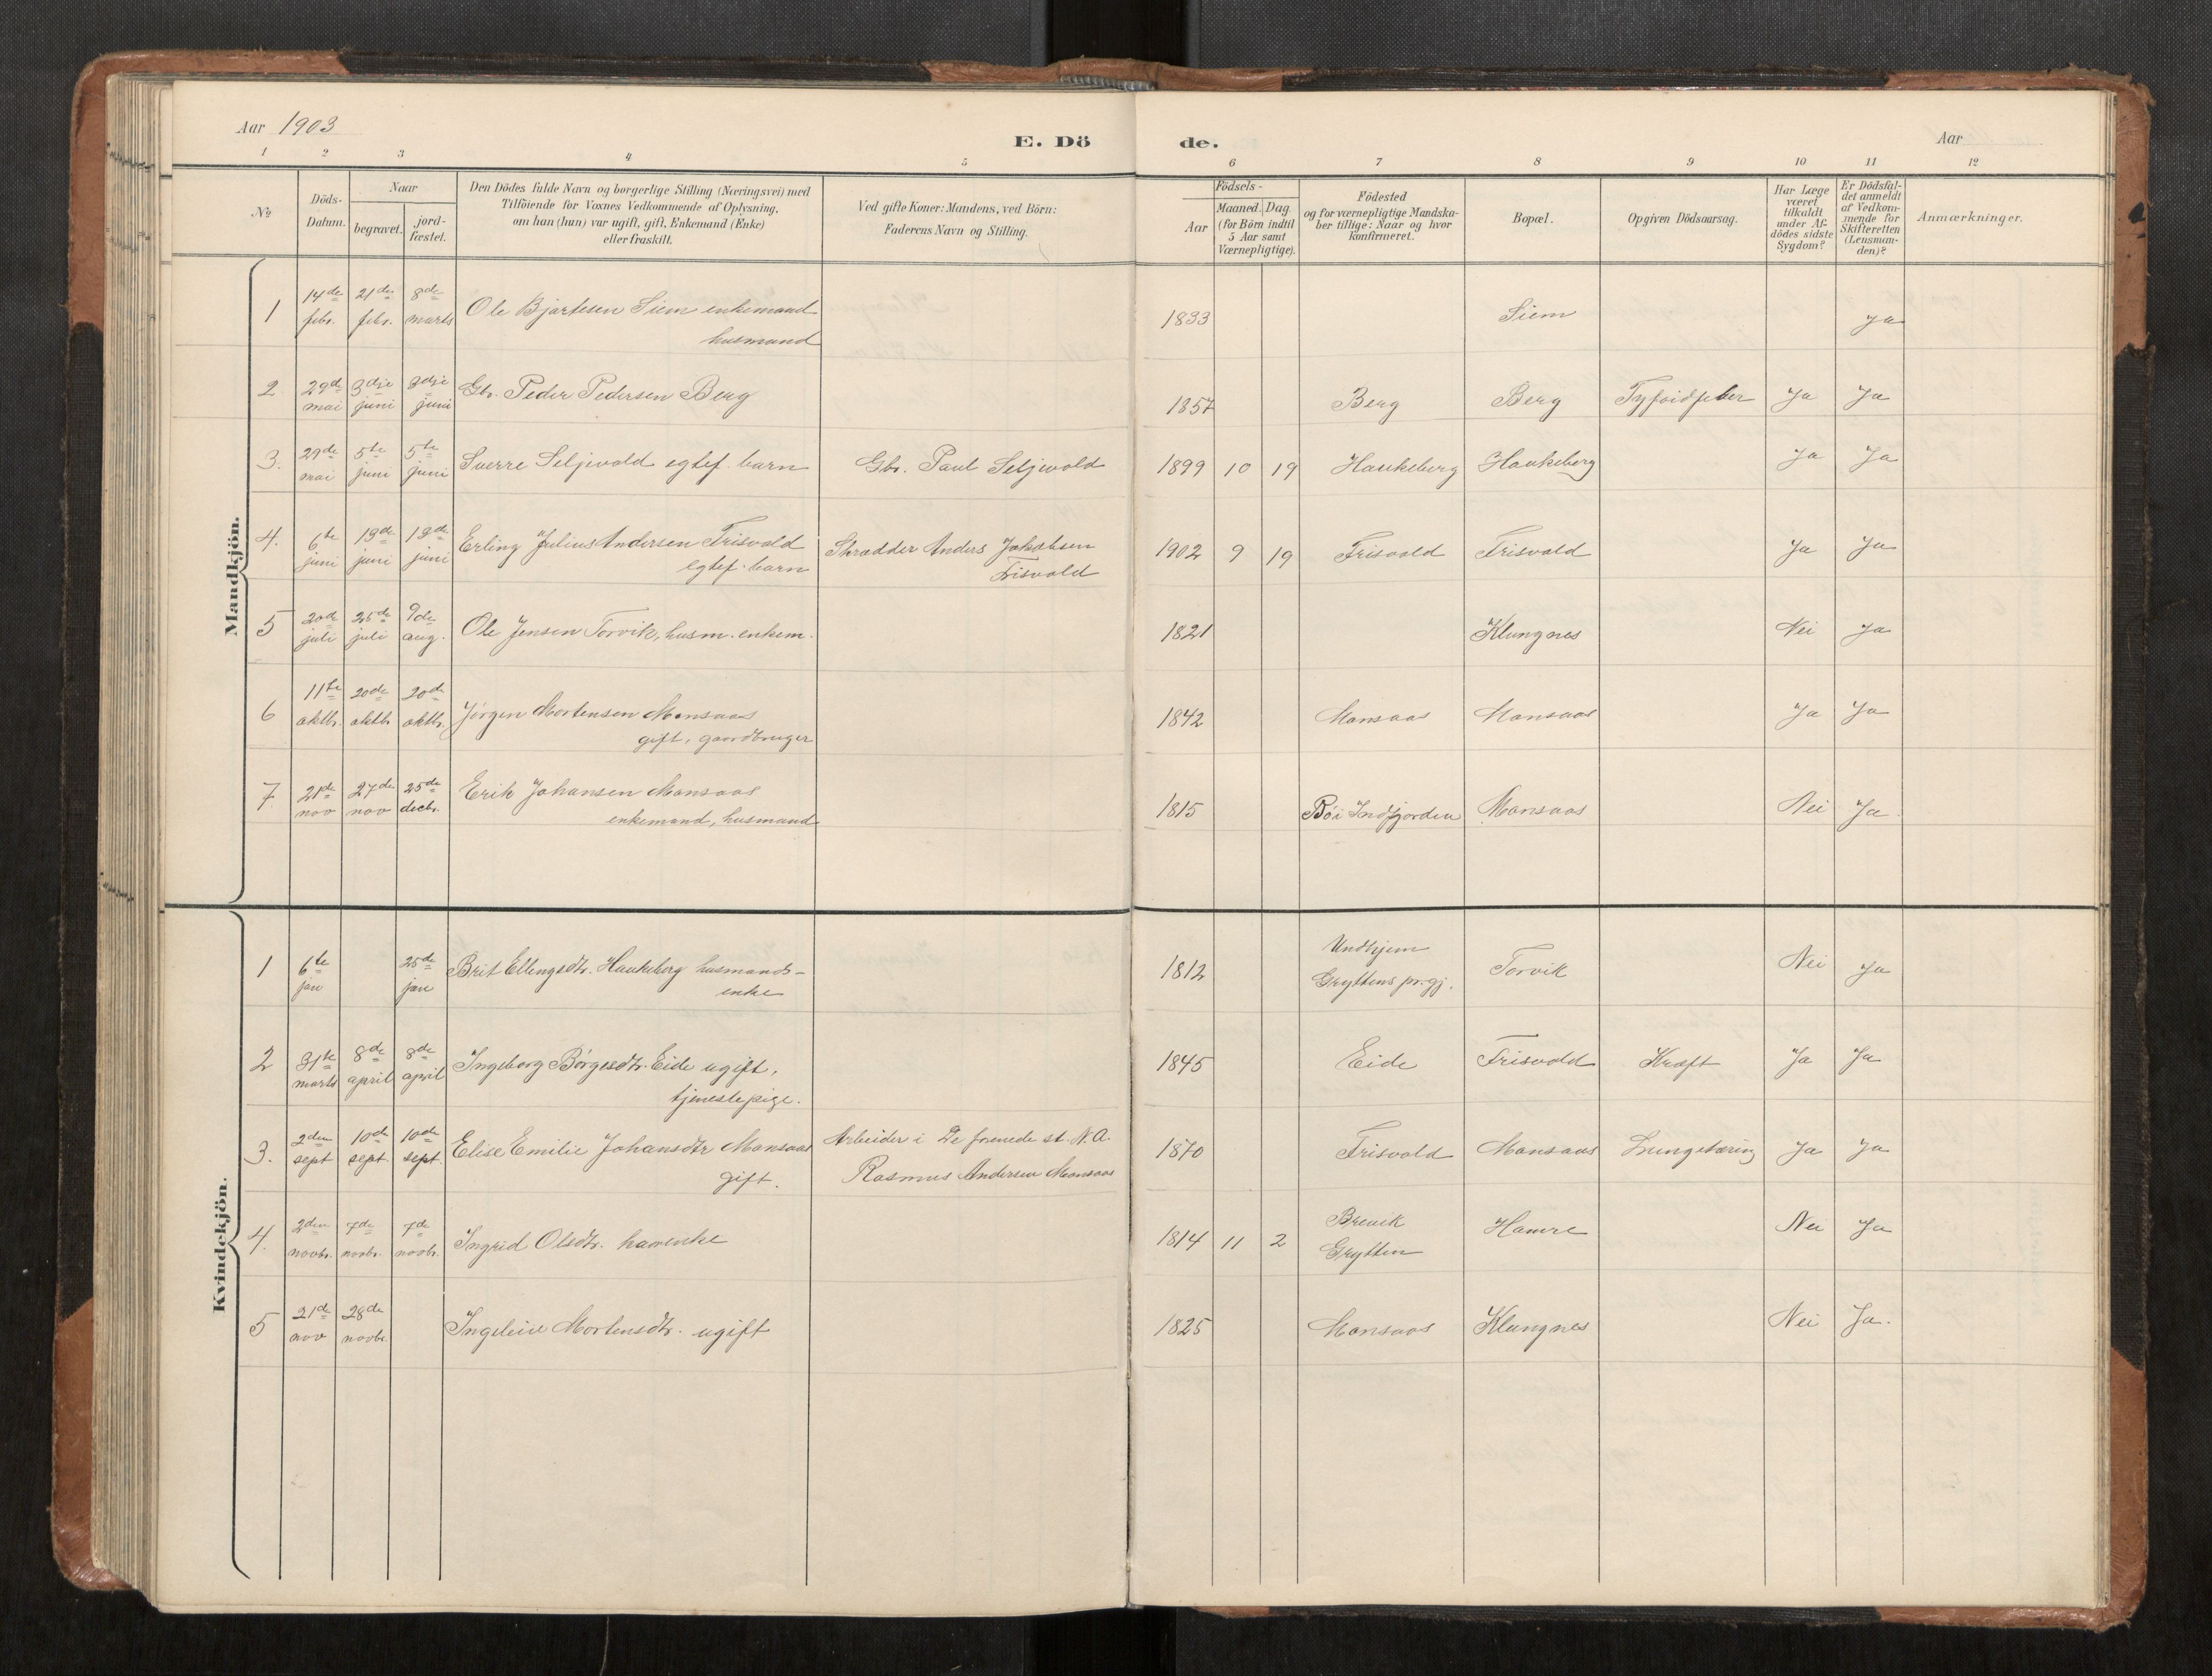 Aar 1903
E. Dö
de.
Aar
1 2 3 4 5 6 7 8 9 10 11 12
No
Döds-
Datum.
Naar
begravet.
jord-
fæstet.
Den Dödes fulde Navn og borgerlige Stilling (Næringsvei) med
Tilföiende for Voxnes Vedkommende af Oplysning,
om han (hun) var ugift, gift, Enkemand (Enke)
eller fraskilt.
Ved gifte Koner: Mandens, ved Börn:
Faderens Navn og Stilling.
Födsels-
Aar
Maaned. Dag.
(for Börn indtil
5 Aar samt
Værnepligtige).
Födested
og for værnepligtige Mandska-
ber tillige: Naar og hvor
konfirmeret.
Bopæl.
Opgiven Dödsaarsag.
Har Læge
været
tilkaldt
under Af-
dödes sidste
Sygdom?
Er Dödsfal-
det anmeldt
af Vedkom-
mende for
Skifteretten
(Lensman-
den)?
Anmærkninger.
Mandkjön.
1 14de febr. 21de febr. 8de marts Ole Bjartesen Siem enkemand 1833 Siem Ja
husmand
2 29de mai 3dje juni 3dje juni Gbr. Peder Pedersen Berg 1857 Berg Berg Tyfoidfeber Ja Ja
3. 29de mai 5te juni 5te juni Sverre Seljevold egtef. barn Gbr. Paul Seljevold 1899 10 19 Haukeberg Haukeberg Ja Ja
4. 6te juni 13de juni 13de juni Erling Julius Andersen Frisvold Skrædder Anders Jakobsen 1902 9 19 Frisvold Frisvold Ja Ja
egtef. barn Frisvold
5 20de juli 25de juli 9de aug. Ole Jensen Torvik, husm. enkem. 1821 Klungnes Nei Ja
6 11te oktbr. 20de oktbr. 20de oktbr. Jørgen Mortensen Monsaas 1842 Monsaas Monsaas Ja Ja
gift, gaardbruger
7. 21de nov 27de nov 25de decbr. Erik Johansen Monsaas 1815 Bøi Indfjorden Monsaas Nei Ja
enkemand, husmand
Kvindekjön.
1 6te jan 25de jan Brit Ellingsdtr. Haukeberg husmands- 1812 Undhjem Torvik Nei Ja
enke Gryttens pr.gj.
2 31te marts 8de april 8de april Ingeborg Børgesdtr. Eide ugift, 1845 Eide Frisvold Kræft Ja Ja
tjenestepige.
3. 2den sept 10de sept. 10de sept. Elise Emilie Johansdtr Monsaas Arbeider i De forenede st. N. A. 1870 Frisvold Monsaas Lungetæring Ja Ja
gift. Rasmus Andersen Monsaas
4. 2den novbr. 7de novbr. 7de novbr. Ingrid Olsdtr. kaarenke 1814 11 2 Brevik Hamre Nei Ja
Grytten
5 21de nov 28de novbr. Ingeleiv Mortensdtr. ugift 1825 Monsaas Klungnes Nei Ja.